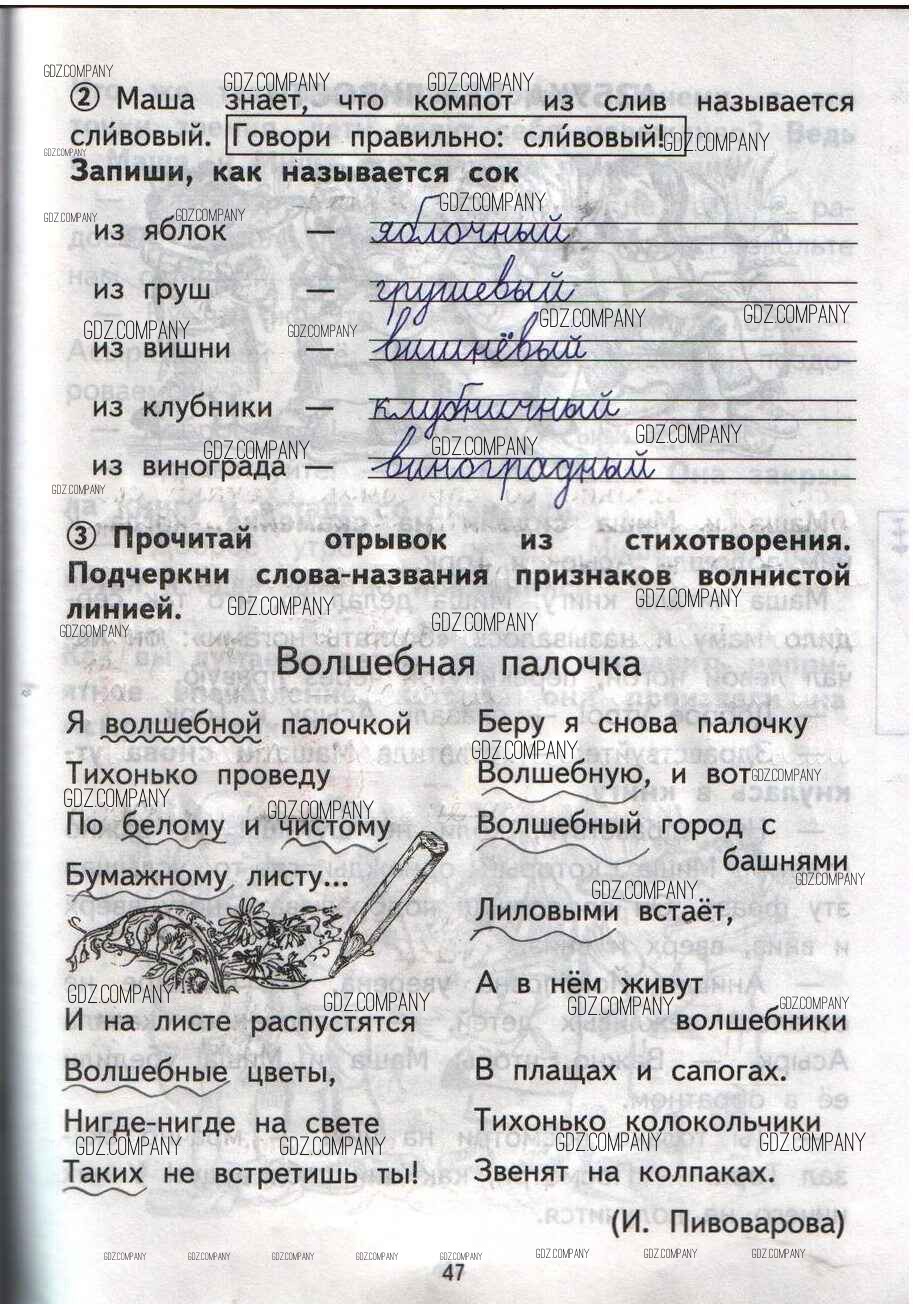 ② Маша знает, что компот из слив называется
сли́вовый. Говори правильно: сли́вовый!
Запиши, как называется сок
из яблок — яблочный
из груш — грушевый
из вишни — вишнёвый
из клубники — клубничный
из винограда — виноградный
③ Прочитай отрывок из стихотворения.
Подчеркни слова-названия признаков волнистой
линией.
Волшебная палочка
Я волшебной палочкой
Тихонько проведу
По белому и чистому
Бумажному листу...
И на листе распустятся
Волшебные цветы,
Нигде-нигде на свете
Таких не встретишь ты!
Беру я снова палочку
Волшебную, и вот
Волшебный город с
башнями
Лиловыми встаёт,
А в нём живут
волшебники
В плащах и сапогах.
Тихонько колокольчики
Звенят на колпаках.
(И. Пивоварова)
47
GDZ.COMPANY